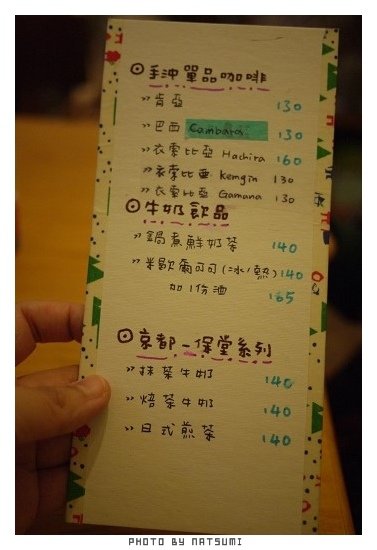 ⊙手沖單品咖啡
»肯亞 130
»巴西 Cambara 130
»衣索比亞 Hachira 160
»衣索比亞 Kemgin 130
»衣索比亞 Gamana 130
⊙牛奶飲品
»鍋煮鮮奶茶 140
»米歇爾可可(冰/熱) 140
加1份酒 165
⊙京都一保堂系列
»抹茶牛奶 140
»焙茶牛奶 140
»日式煎茶 140
PHOTO BY NATSUMI